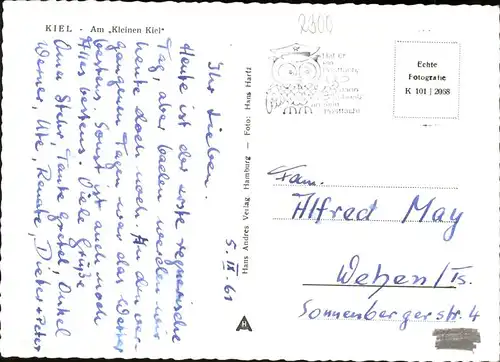 KIEL - Am „Kleinen Kiel“
Ihr Lieben.
Heute ist der erste regnerische
Tag, aber baden werden wir
heute doch noch. An den ver-
gangenen Tagen war das Wetter
bestens. Sonst ist auch noch
Alles bestens. Viele Grüße
Oma Stehr, Tante Gretel, Onkel
Werner, Ute, Renate, Dieter +
5. IX. 61
Hans Andres Verlag, Hamburg — Foto: Hans Hartz
2300
Echte
Fotografie
K 101 | 2058
Fam.
Alfred May
Wehen/Ts.
Sonnenbergerstr. 4